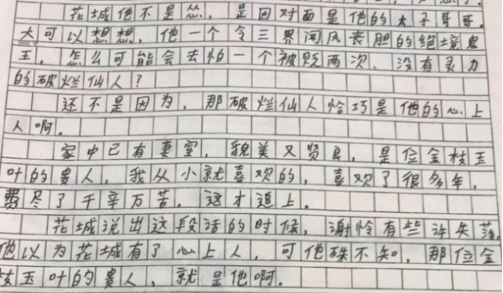 花城他不是怂，是因对面是他的太子哥哥。
大可以想想，他一个令三界闻风丧胆的绝境鬼
王，怎么可能会去怕一个被贬两次，没有灵力
的破烂仙人？
还不是因为，那破烂仙人恰巧是他的心上
人啊。
家中已有妻室，貌美又贤良，是位金枝玉
叶的贵人，我从小就喜欢的，喜欢了很多年，
费尽了千辛万苦，这才追上。
花城说出这段话的时候，谢怜有些许失落，
他以为花城有了心上人，可他殊不知，那位金
枝玉叶的贵人，就是他啊。